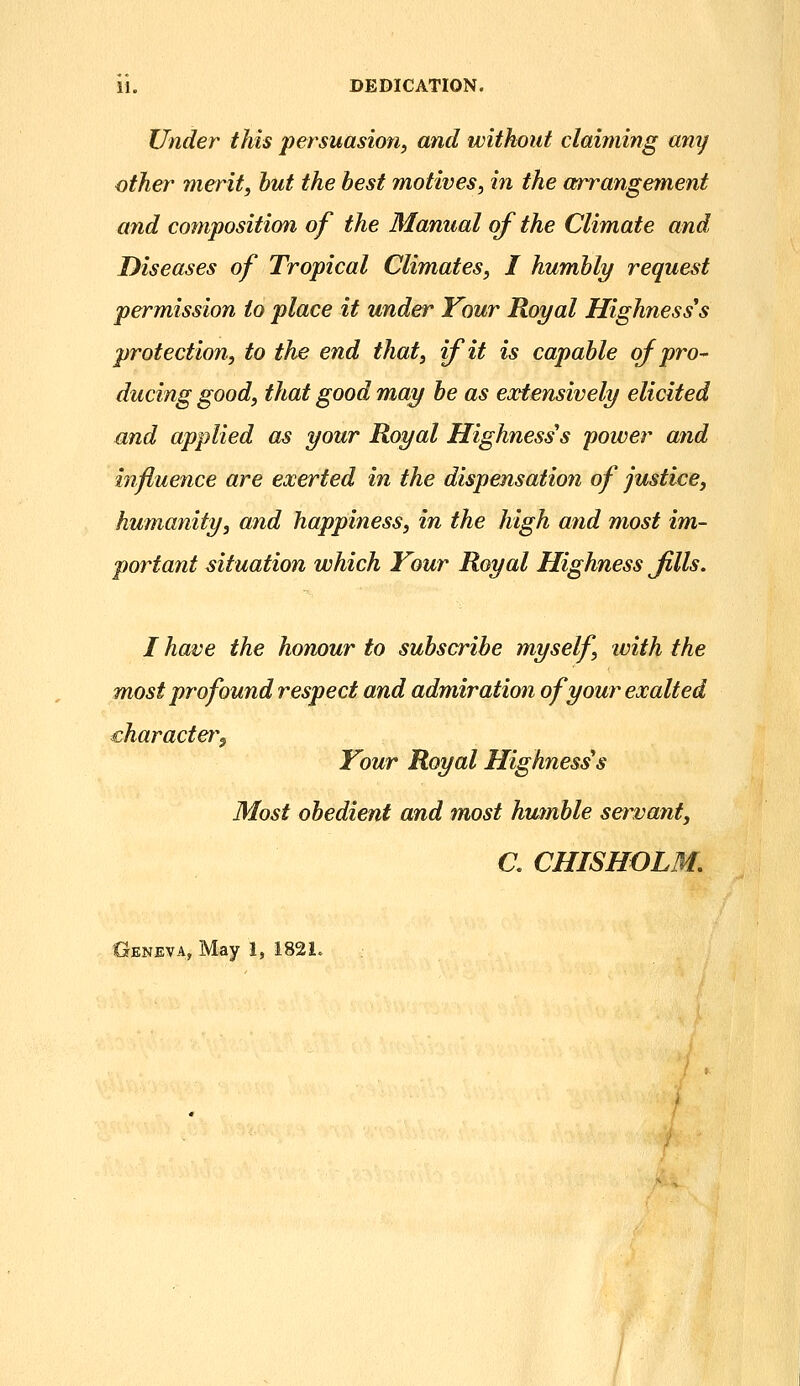 ii. DEDICATION.
Under this persuasion, and without claiming any
other merit, but the best motives, in the arrangement
and composition of the Manual of the Climate and
Diseases of Tropical Climates, I humbly request
permission to place it under Your Royal Highness's
protection, to the end that, if it is capable of pro-
ducing good, that good may be as extensively elicited
and applied as your Royal Highness's power and
influence are exerted in the dispensation of justice,
humanity, and happiness, in the high and most im-
portant situation which Your Royal Highness fills.
I have the honour to subscribe myself, with the
most profound respect and admiration of your exalted
character,
Your Royal Highness's
Most obedient and most humble servant,
C. CHISHOLM.
GENEVA, May 1, 1821.